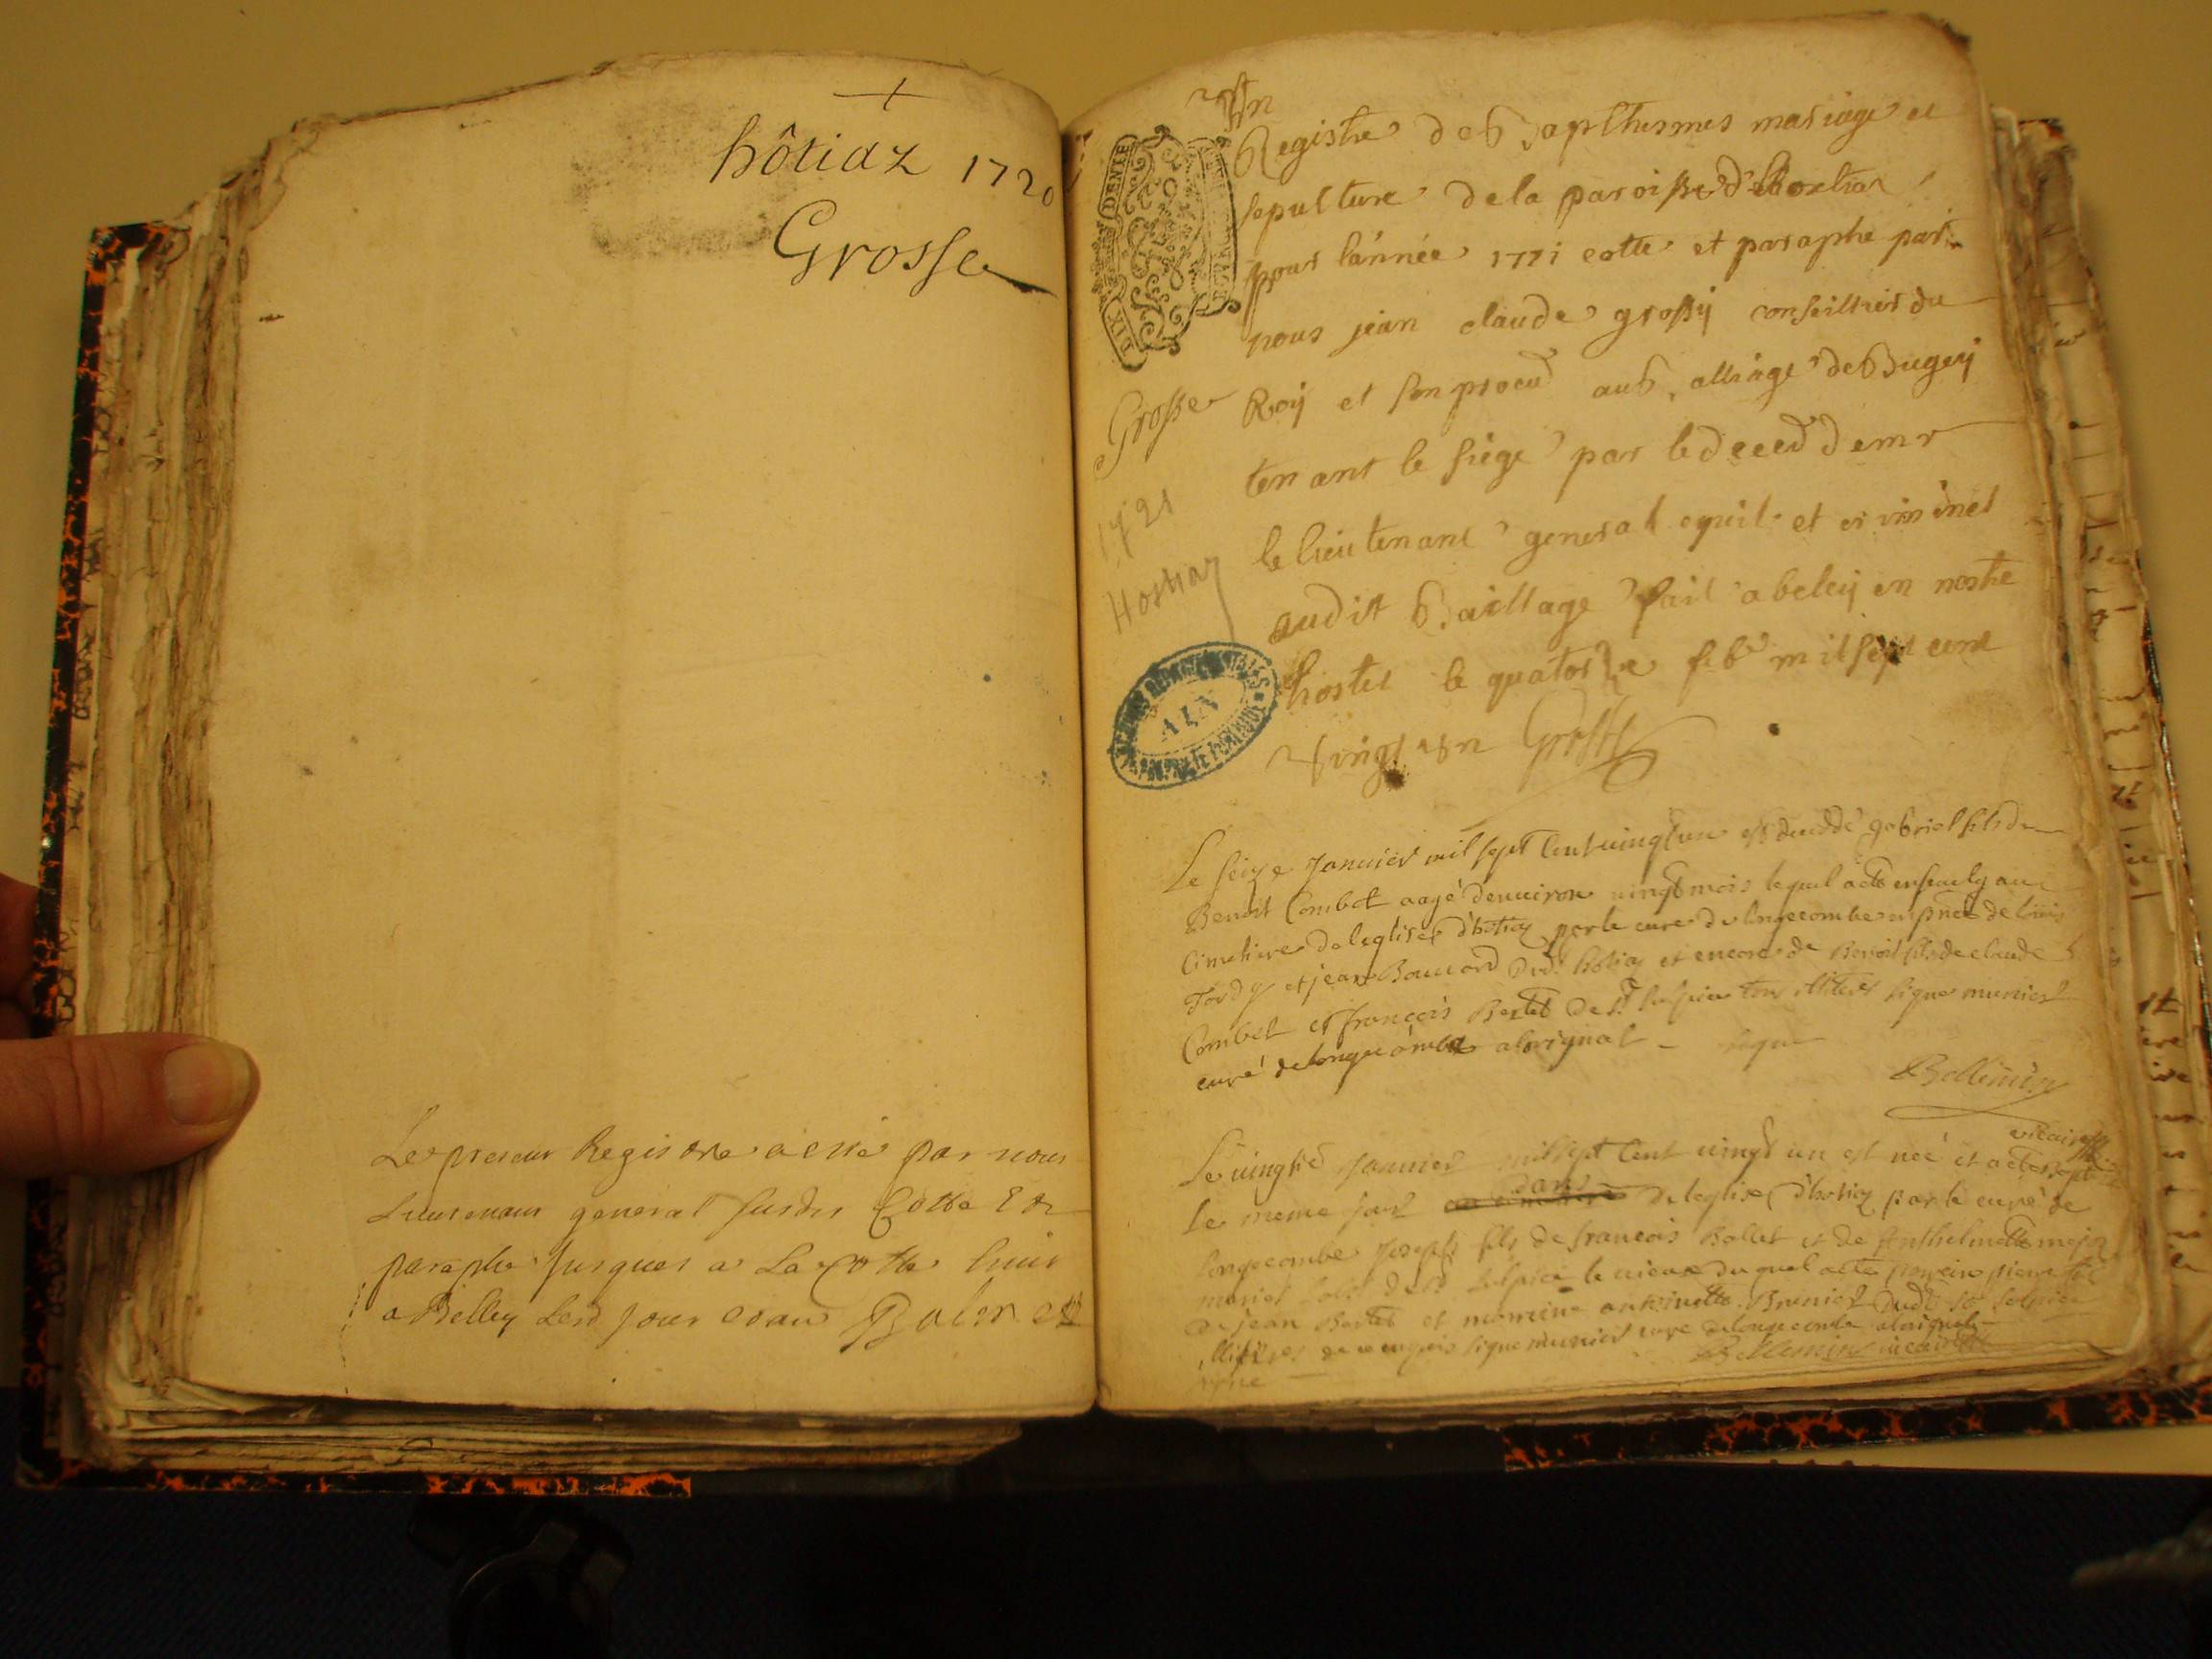 hôtiaz 1720
Grosse
Le present Registre a esté par nous
Lieutenant general susdit Cotté Et
paraphe jusques a La Cotte huit
a Belley Lesd jour et an
Un
DIX DENIE
Registre de bapthesmes mariage et
sepulture de la paroisse d'hostia
pour l'année 1721 cotte et paraphe par
nous jean claude grossy conseillier du
Roy et son procud au balliage de bugey
tenant le siege par le deced de mr
le lieutenant general civil et criminel
audit bailliage fait a beley en nostre
hostel le quatorze feb mil sept cent
vingt un Grossy
Grosse
1721
Hostiaz
AIN
Le seize Janvier mil sept Cent vingt un est decedé gabriel fils de
Benoit Combet aagé denuiron vingt mois lequel a esté enseuely au
Cimetiere de leglise d'hotiaz par le curé de longecombe en pnce de
Tordy et jean Bouuard dud hotiaz et encore de Benoit fils de claude
Combet et françois Bertet de st sulpice tous illiteres signe munier
curé de longecombe a lorignal - signe
Bellemin
vicaire
Le vingt Janvier mil sept Cent vingt un est née et a esté baptisé
le meme jour dans de leglise d'hotiaz par le curé de
longecombe Joseph fils de francois Ballet et de Anthelmette
mariés de st sulpice le vieux duquel a esté parrein pierre fils
de jean Bertet et marreine antoinette Brunier dudt st sulpice
illiteres de ce enquis signe munier cure de longecombe a lorignal
signe Bellemin vicaire